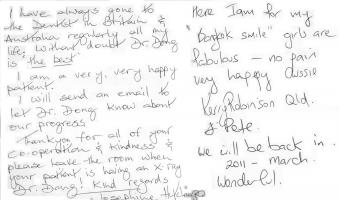 I have always gone to
the Dentist in Britain &
Australia regularly all my
life; Without doubt Dr. Dong
is the best
I am a very, very happy
patient.
I will send an email to
let Dr. Dong know about
our progress
Thankyou for all of your
co-operation & kindness &
please leave the room when
your patient is having an X-ray
Dr. Dong! Kind regards
Josephine
Here I am for my
"Bangkok smile" girls are
fabulous – no pain
very happy Aussie
Kerry Robinson Qld.
& Pete.
we will be back in
2011 – march.
Wonderful.